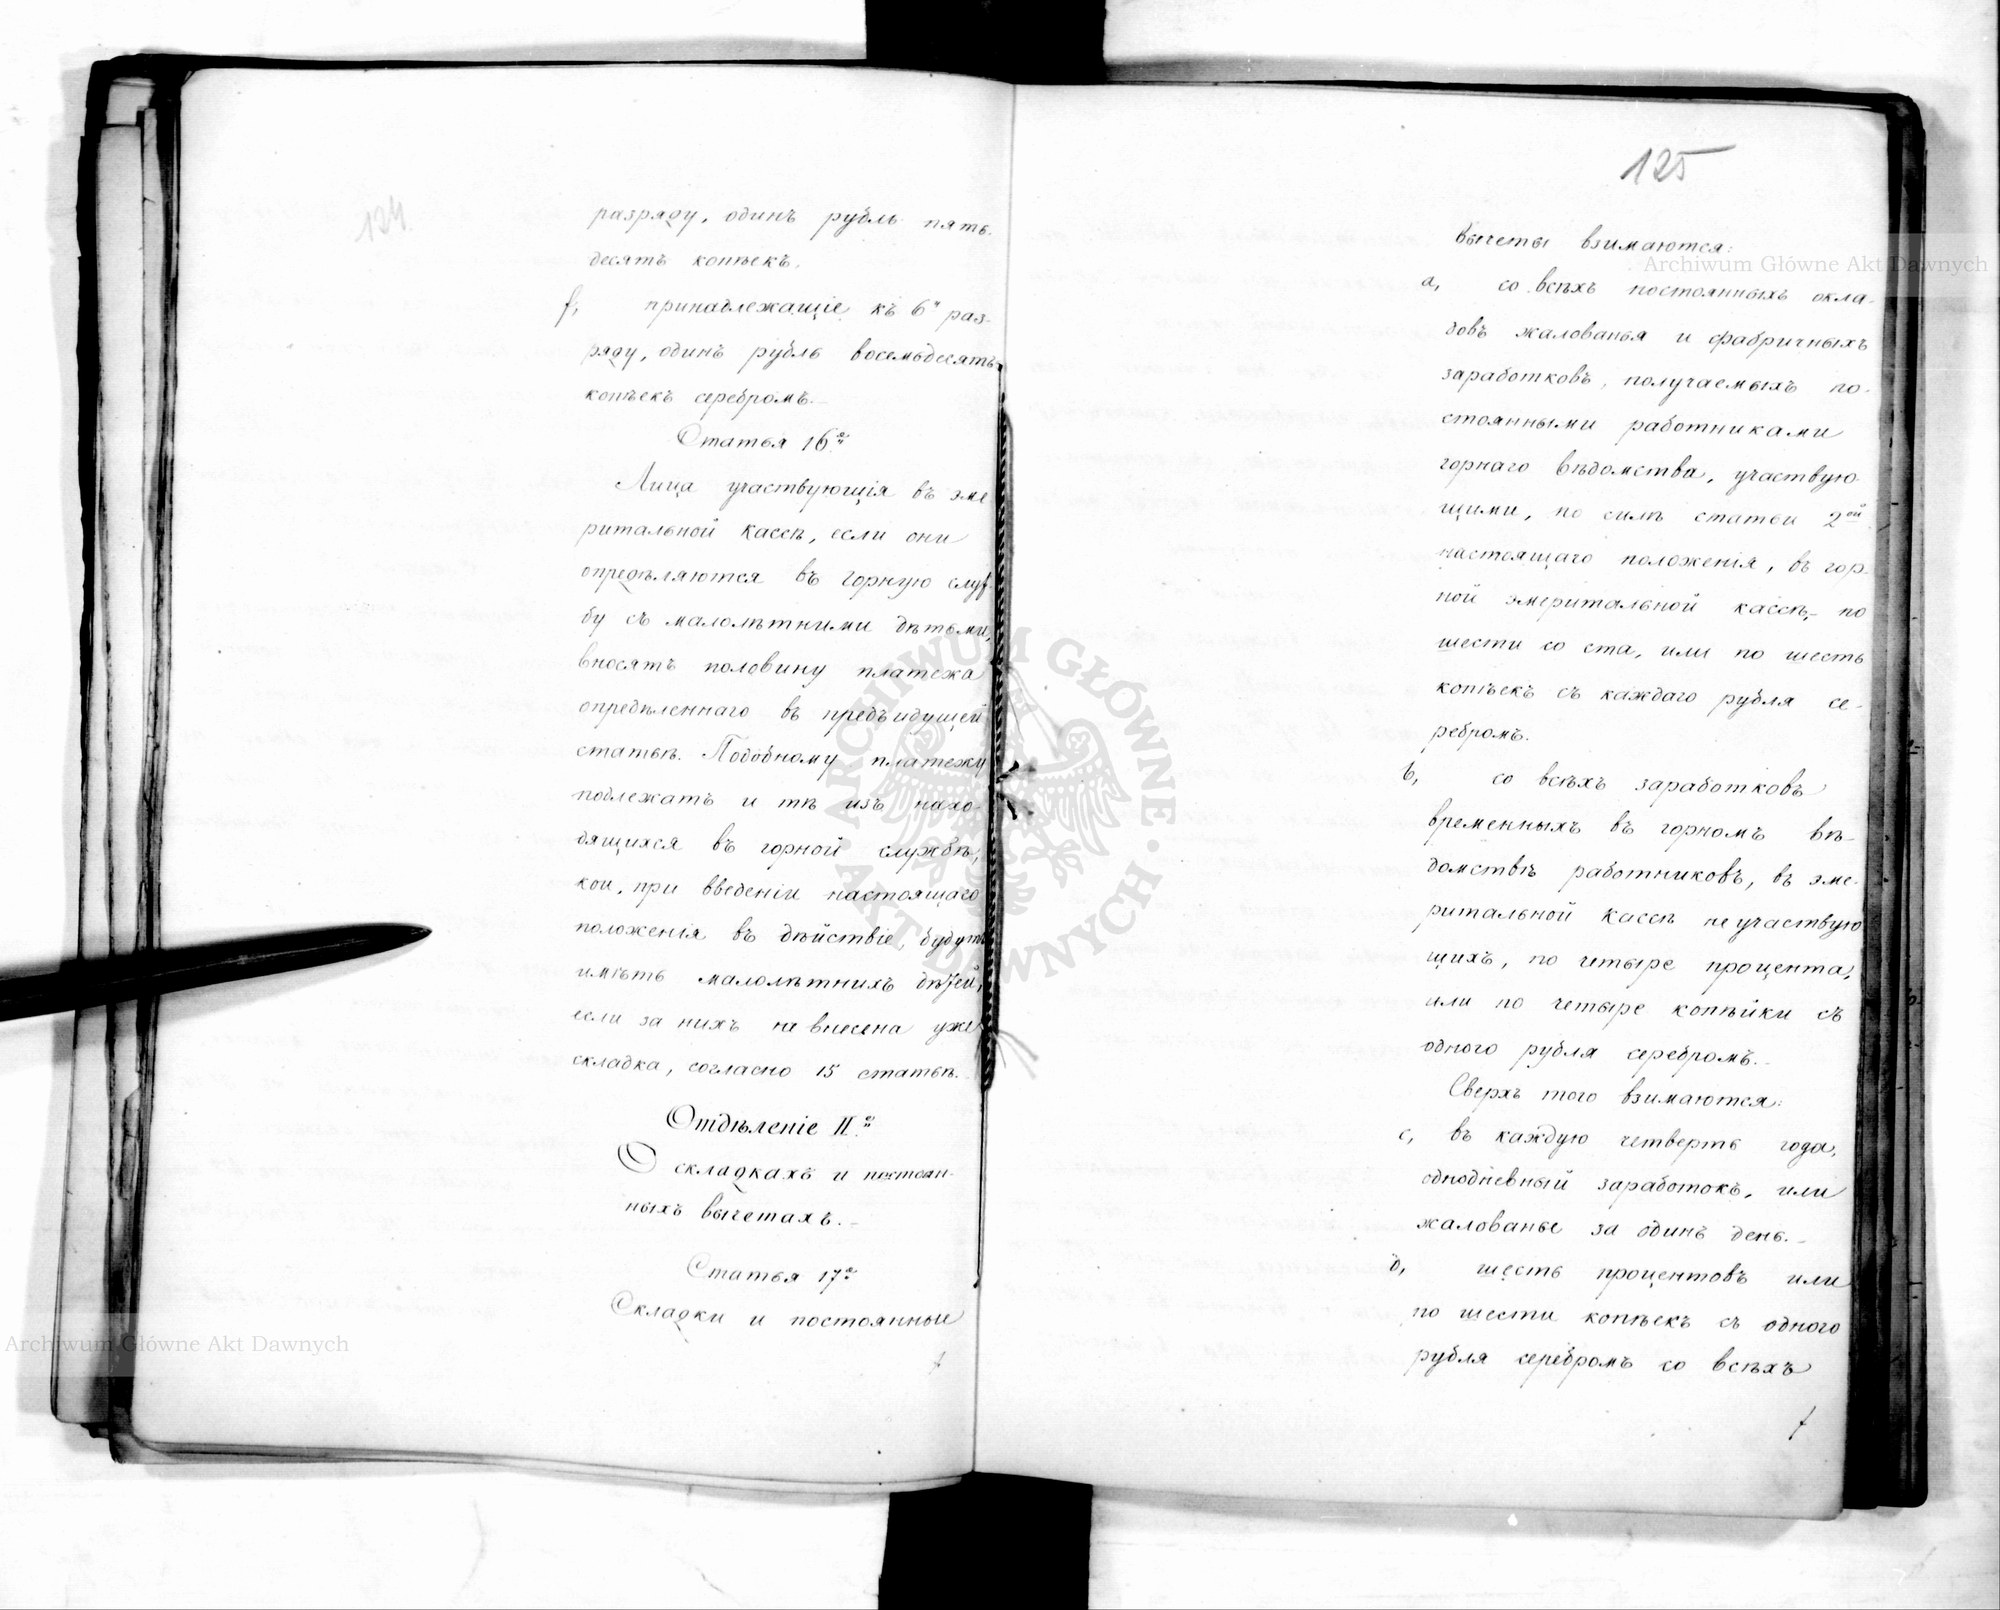 разряду, одинъ рубль пять-
десятъ копѣекъ.
f, принадлежащіе къ 6" раз-
ряду, одинъ рубль восемьдесятъ
копѣекъ серебромъ.
Статья 16ª
Лица участвующія въ эме
ритальной кассѣ, если они
опредѣляются въ горную служ-
бу съ малолѣтними дѣтьми,
вносятъ половину платежа
опредѣленнаго въ предъидущей
статьѣ. Подобному платежу
подлежатъ и тѣ изъ нахо-
дящихся въ горной службѣ,
кои, при введеніи настоящаго
положенія въ дѣйствіе, будутъ
имѣть малолѣтнихъ дѣтей,
если за нихъ не внесена уже
складка, согласно 15 статьѣ.
Отдѣленіе II.е
О складкахъ и постоян-
ныхъ вычетахъ.
Статья 17ª
Складки и постоянные
124.
125
вычеты взимаются:
a, со всѣхъ постоянныхъ окла-
довъ жалованья и фабричныхъ
заработковъ, получаемыхъ по-
стоянными работниками
горнаго вѣдомства, участвую
щими, по силѣ статьи 2ой
настоящаго положенія, въ гор-
ной эмеритальной кассѣ, по
шести со ста, или по шесть
копѣекъ съ каждаго рубля се-
ребромъ.
b, со всѣхъ заработковъ
временныхъ въ горномъ вѣ-
домствѣ работниковъ, въ эме-
ритальной кассѣ не участвую
щихъ, по четыре процента,
или по четыре копѣйки съ
одного рубля серебромъ.
Сверхъ того взимаются:
c, въ каждую четверть года,
однодневный заработокъ, или
жалованье за одинъ день.
d, шесть процентовъ или
по шести копѣекъ съ одного
рубля серебромъ со всѣхъ
Archiwum Główne Akt Dawnych
Archiwum Główne Akt Dawnych
ARCHIWUM GŁÓWNE AKT DAWNYCH